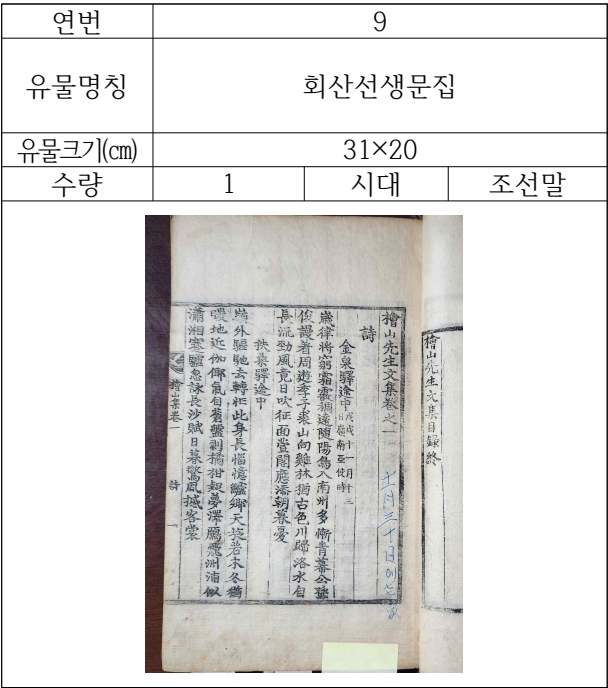 연번 9
유물명칭 회산선생문집
유물크기(㎝) 31×20
수량 1 시대 조선말
檜山先生文集目錄終
檜山先生文集卷之一
詩
金泉驛途中 戊戌十一月十三日嶺南亞使時
歲律將窮霜霰稠遠隨陽鳥入南州多慚青幕公孫
俊謾着周遊季子裘山向雞林猶古色川歸洛水自
長流勁風竟日吹征面當閣應潘朝暮憂
扶桑驛途中
嶺外驅馳去轉忙此身長惱憶鱸鄕天旋若木冬猶
暖地近伽倻氣自蒼盤剝橘柑起夢澤鴈飛洲浦似
瀟湘蹇驢忽詠長沙賦日暮驚風撼客裳
檜山集卷一
詩
一